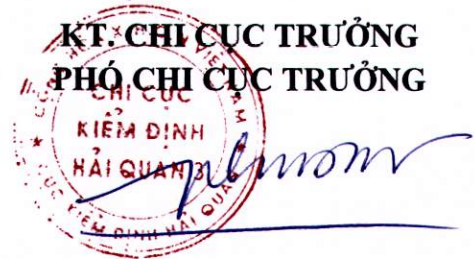 KT. CHI CỤC TRƯỞNG
PHÓ CHI CỤC TRƯỞNG
CHI CỤC
KIỂM ĐỊNH
HẢI QUAN 3
CỤC KIỂM ĐỊNH HẢI QUAN
VIỆT NAM